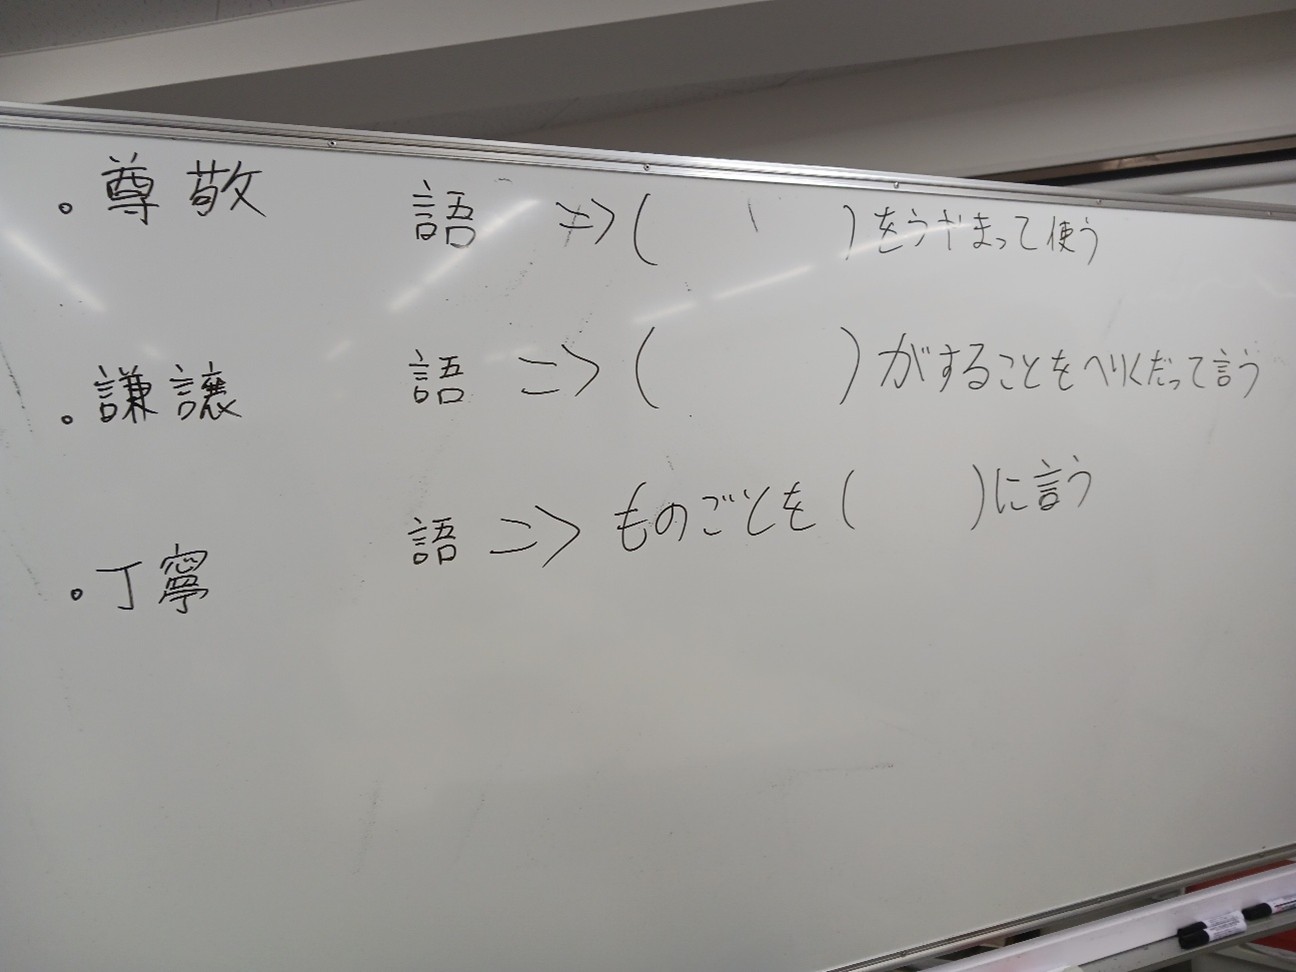 。尊敬 語 => ( ) をうやまって使う
。謙譲 語 => ( ) がすることをへりくだって言う
。丁寧 語 => ものごとを ( ) に言う